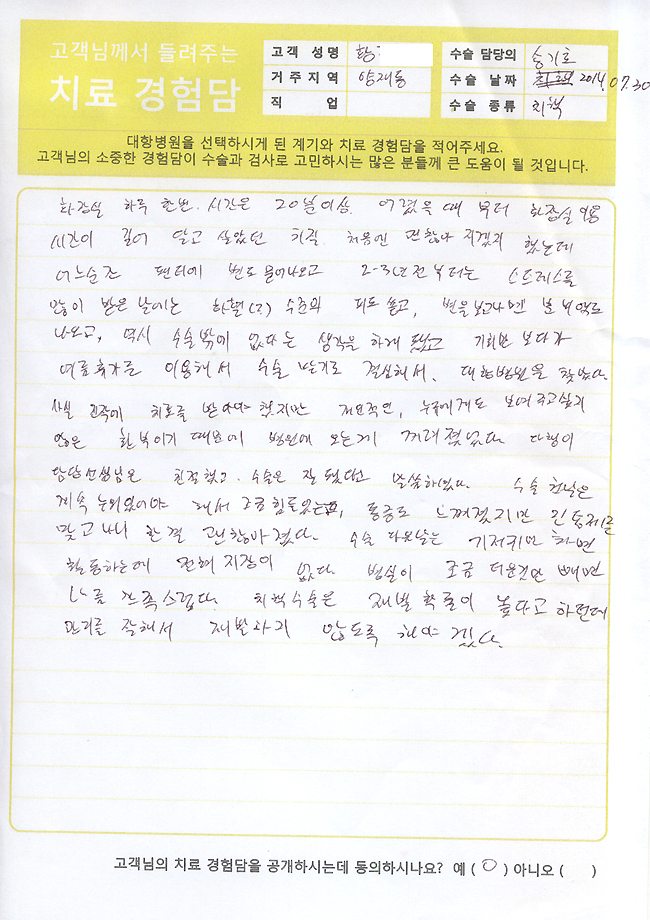 고객님께서 들려주는
치료 경험담
고객 성명 황
거주지역 양재동
직 업
수술 담당의 송기호
수술 날짜 2014.07.30
수술 종류 치핵
대항병원을 선택하시게 된 계기와 치료 경험담을 적어주세요.
고객님의 소중한 경험담이 수술과 검사로 고민하시는 많은 분들께 큰 도움이 될 것입니다.
화장실 하루 한번. 시간은 20분이상. 어렸을 때 부터 화장실 이용
시간이 길어 달고 살았던 치질. 처음엔 괜찮아 지겠지 했는데
어느순간 팬티에 변도 묻어나오고 2-3년전부터는 스트레스를
많이 받은 날에는 하혈(?) 수준의 피도 쏟고, 변을보고나면
나오고, 역시 수술밖에 없다는 생각을 하게 됐고 기회만 보다가
여름휴가를 이용해서 수술 받기로 결심해서, 대항병원을 찾았다.
사실 진작에 치료를 받아야 했지만 개인적인, 누구에게도 보여주고싶지
않은 환부이기 때문에 병원에 오는게 꺼려졌었다. 다행히
담당선생님은 친절했고. 수술은 잘 됐다고 말씀하셨다. 수술 첫날은
계속 누워있어야 해서 조금 힘들었는데, 통증도 느껴졌지만 진통제를
맞고 나니 한결 괜찮아졌다. 수술 다음날는 기저귀만 차면
활동하는데 전혀 지장이 없다. 병실이 조금 더운것만 빼면
나름 만족스럽다. 치핵수술은 재발 확률이 높다고 하던데
관리를 잘해서 재발하지 않도록 해야 겠다.
고객님의 치료 경험담을 공개하시는데 동의하시나요? 예 ( O ) 아니오 ( )